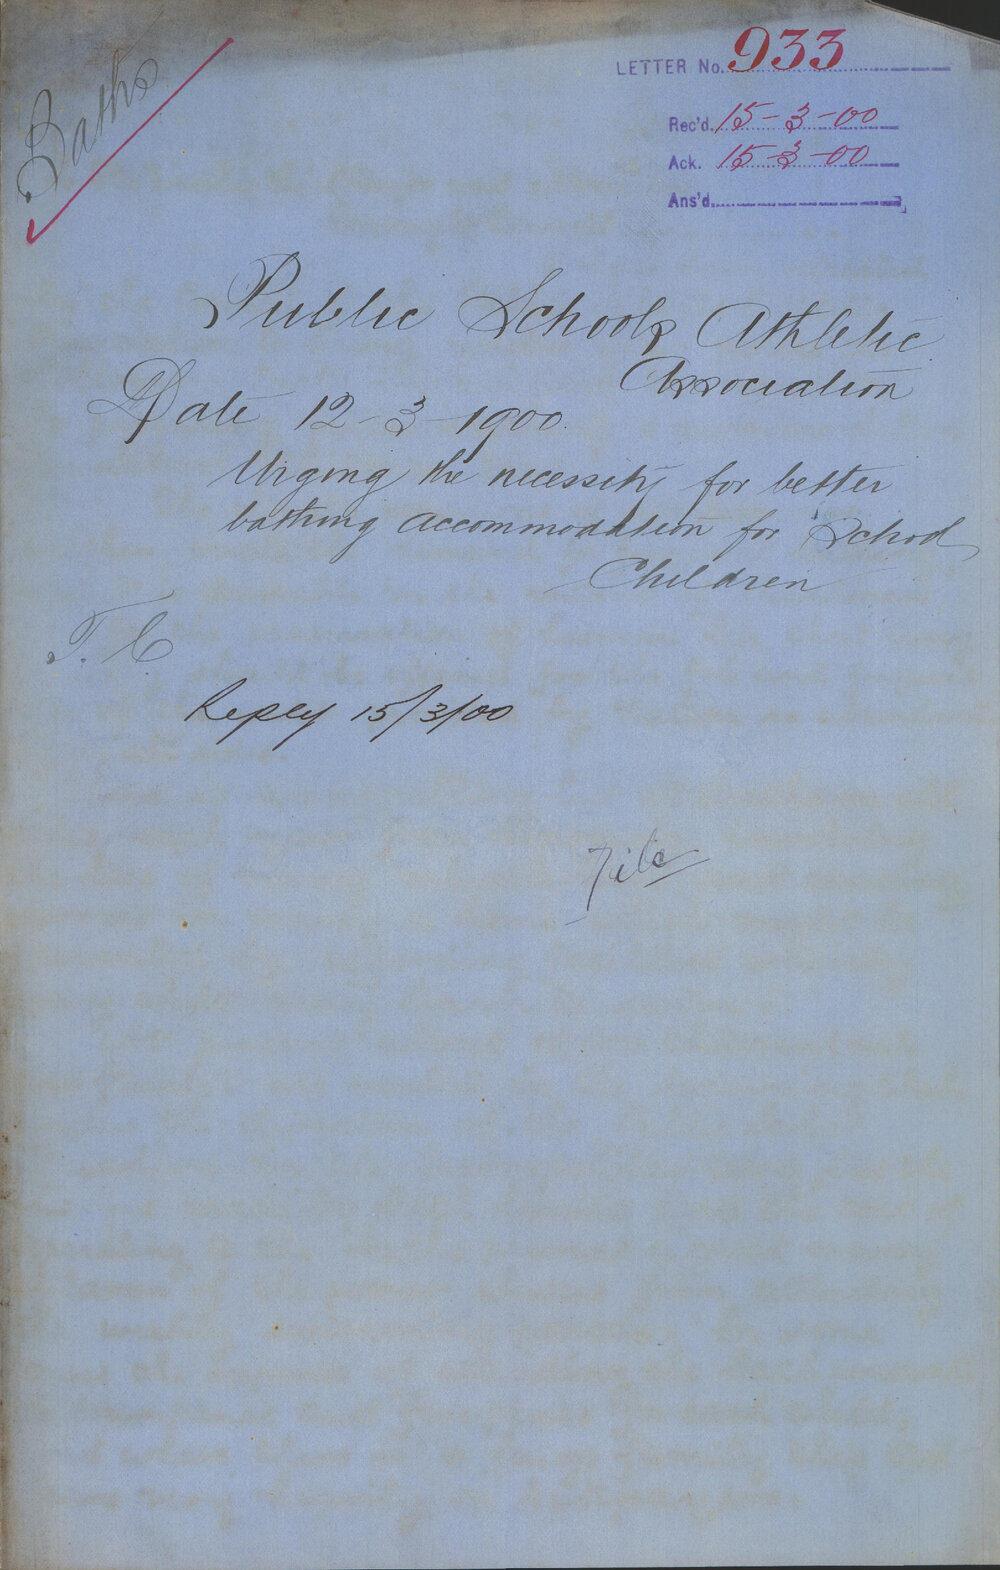 Baths
LETTER No. 933
Rec'd. 15-3-00
Ack. 15-3-00
Ans'd.
Public Schools Athletic
Association
Date 12-3-1900.
Urging the necessity for better
bathing accommodation for School
Children
T. C
Reply 15/3/00
File